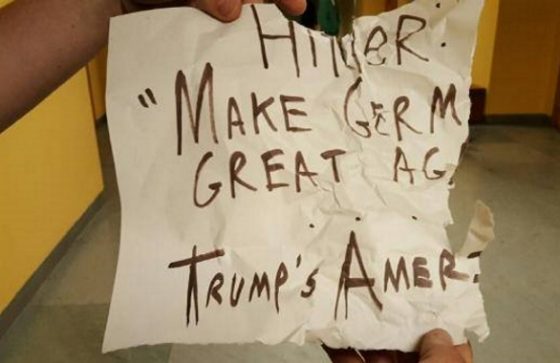 HITLER:
"MAKE GERM
GREAT AG
TRUMP'S AMER